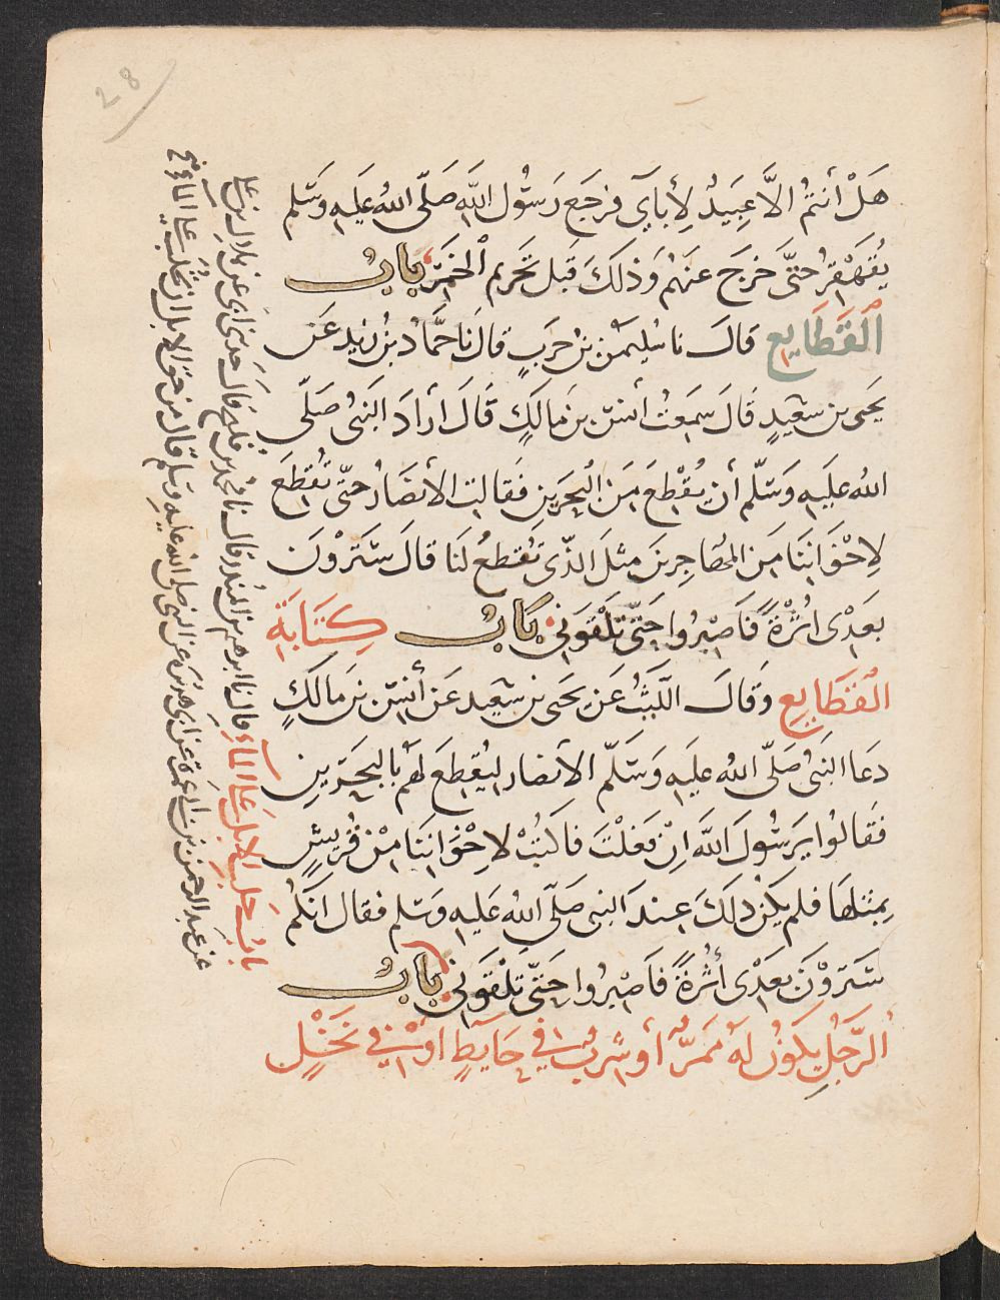 28
هَلْ أَنتُمُ الَّا عَبِيدٌ لِأَبَايَ فرجَع رَسُول اللَّهِ صَلّى اللهُ عَلَيهِ وَسَلّم
يُقَهْقِرُ حَتَّى خرَجَ عَنهُم وَذلكَ قَبل تَحريم الخَمْر بابُ
القَطَايِع قالَ نا سُليمٰن بنُ حَربٍ قالَ نا حَمَّاد بنُ زيد عَن
يَحيى بن سَعيدٍ قالَ سَمِعتُ أنسَ بنَ مالكٍ قَالَ أرَادَ النَبىُ صَلّى
اللهُ عَلَيهِ وَسَلّم أن يُقْطِعَ مِنَ البَحرَينِ فقالت الأنصَارُ حتّى تُقطِعَ
لِاخْوَانِنَا مِنَ المُهاجِرينَ مثلَ الذّى تُقطعُ لَنَا قالَ سَتَرَوْنَ
بَعدِى اُثْرَةً فَاصبِرُوا حَتّى تَلْقَوْنِى بَابُ كِتَابَةِ
القَطَايِعِ وَقالَ اللّيثُ عَن يَحيى بن سَعِيد عَن أنسِ بن مَالكٍ
دَعَا النَبىُ صَلّى اللهُ عَلَيهِ وَسَلّم الأنصَار ليُقطِعَ لهُم بالبحرَينِ
فقَالوُا يرَسُولَ اللَّه اِنْ فعَلْتَ فاكتُبْ لاِخْوَانِنَا مِنْ قُرَيشٍ
بِمثلهَا فلم يكن ذلكَ عِندَ النبى صَلّى اللهُ عَلَيهِ وَسَلم فقال انكُمْ
سَتَرَوْنَ بعدِى أُثرةً فَاصبِرُوا حَتّى تَلْقَوْنِى بَابُ
الرَّجُلِ يكوُنُ لهُ مَمَرٌّ أو شِربٌ في حَايطٍ اوْ في نَخْلٍ
بابُ حَلب الابل عَلى المَاءِ قال نا ابرهيم بن المنذر قال نا محمد بن فليح قَالَ حَدثنى ابى عن هلال بن على
عن عبد الرحمٰن بن ابى عمرة عن ابى هريرة عن النبى صلى الله عليه وسلم قال من حق الابل ان تُحلَب على الماء